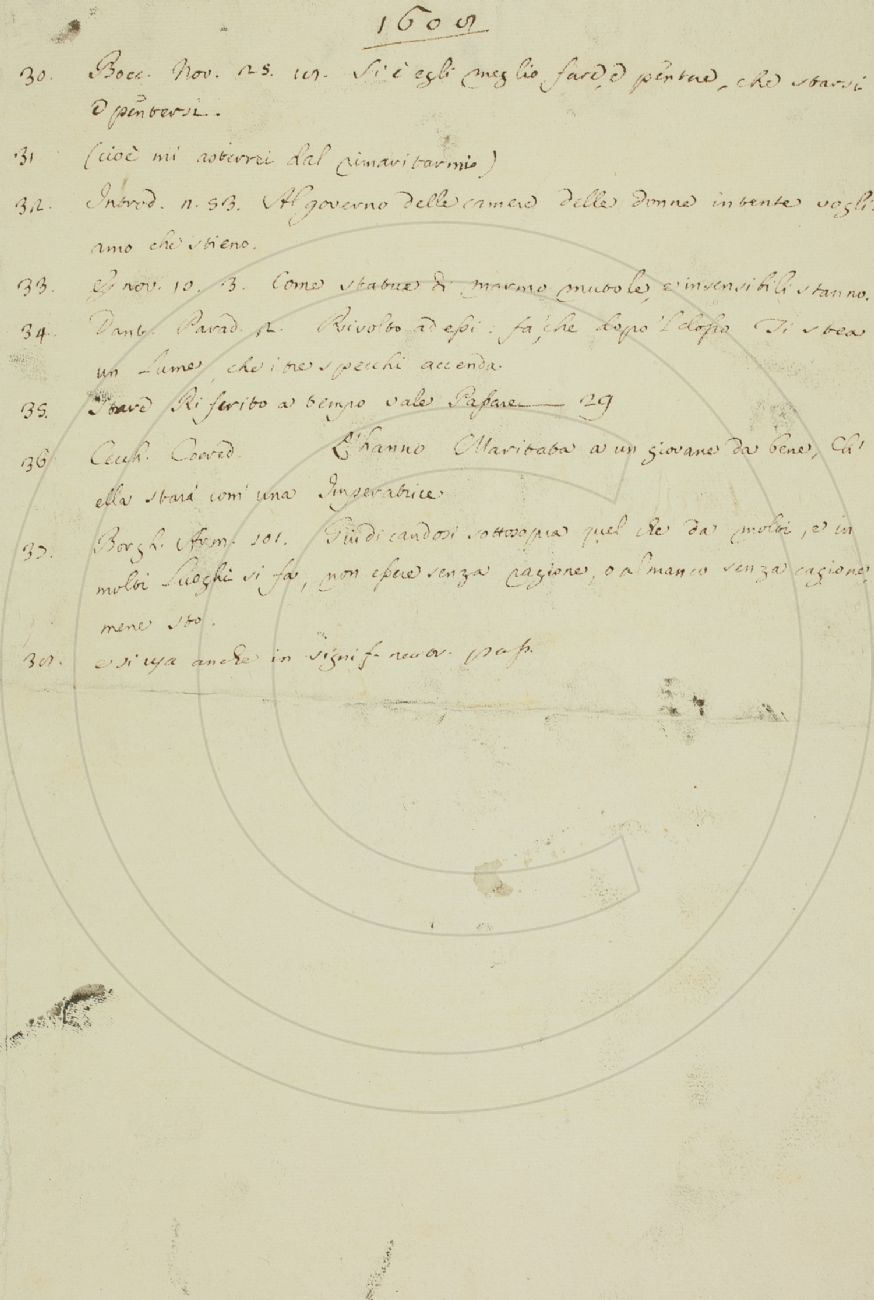 1608
30. Bocc. Nov. 25. 18. Si è egli meglio fare, e pentere, che starsi
e pentersi.
31 (cioè mi asterrei dal rimaritarmi)
32. Introd. n. 53. Al governo delle camere delle donne intente vogli-
amo che stieno.
33. nov. 10. 3. Come statue di marmo mutole, e insensibili stanno.
34. Dant. Parad. 2. Rivolto ad essi: fa, che dopo 'l dosso Ti stea
un Lume, che i tre specchi accenda
35. Stare Riferito a tempo vale Passare 29
36. Cecch. Cored. L'hanno Maritata a un giovane da bene, Ch'
ella starà com' una Imperatrice
37. Borgh. Arm. 101. Giudicandosi sottosopra quel che da molti, e in
molti Luoghi si fa, non essere senza ragione, o almanco senza cagione,
mene sto.
38. e si usa anche in signif. neutr. pass.